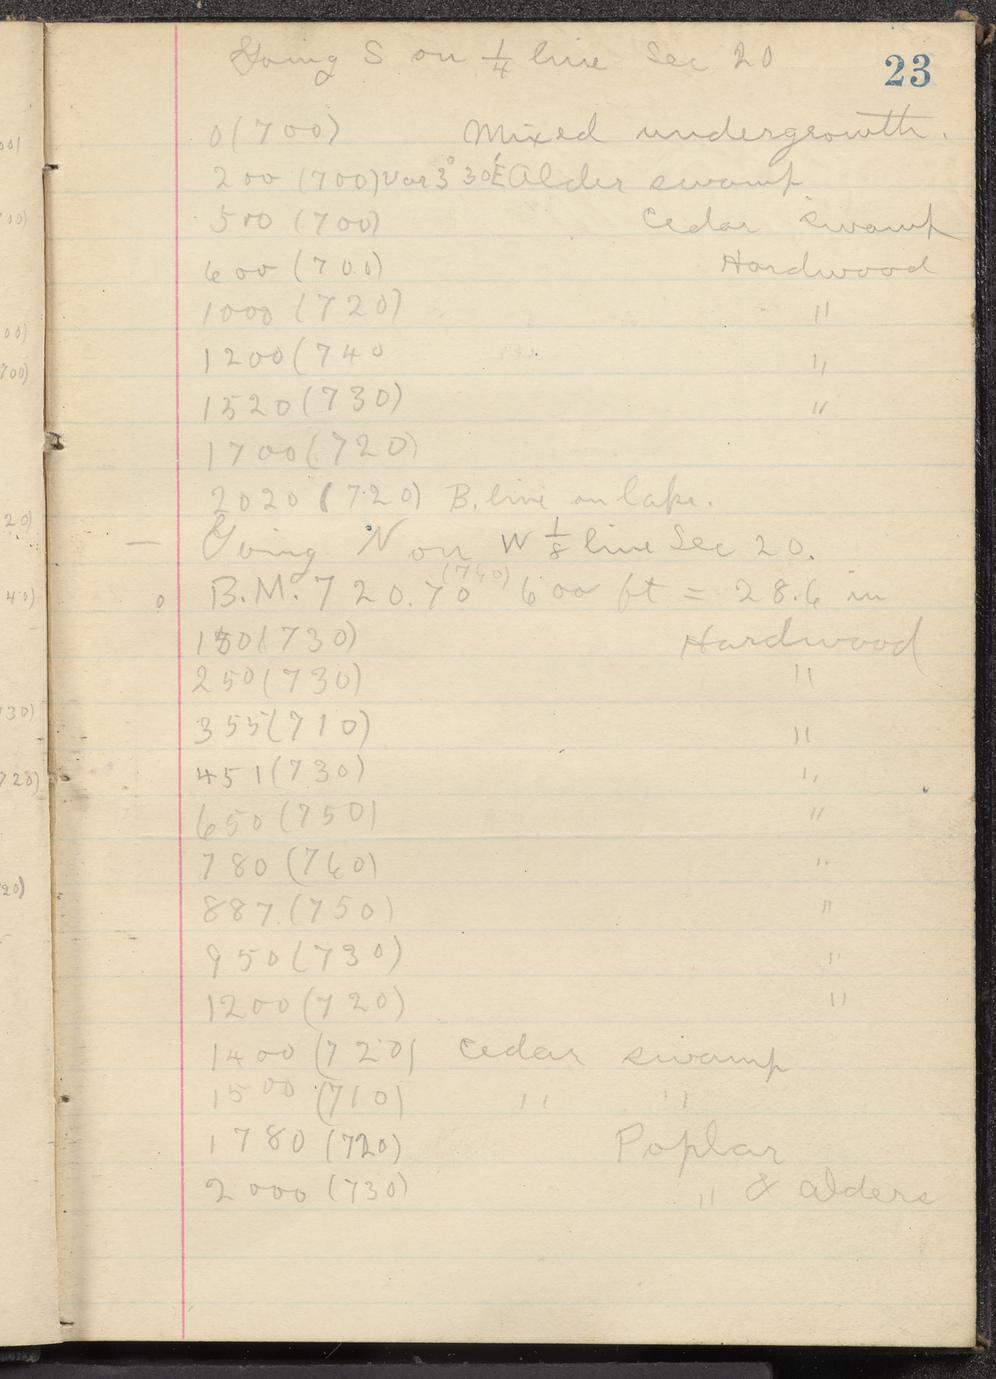 23
Going S on 1/4 line Sec 20
0 (700) Mixed undergrowth.
200 (700) Var 3° 30' E Alder swamp
500 (700) Cedar swamp
600 (700) Hardwood
1000 (720) "
1200 (740 "
1520 (730) "
1700 (720)
2020 (720) B. line on lake.
— Going N on W 1/8 line Sec 20.
(740)
0 B.M. 720.70 600 ft = 28.6 in
150 (730) Hardwood
250 (730) "
355 (710) "
451 (730) "
650 (750) "
780 (760) "
887 (750) "
950 (730) "
1200 (720) "
1400 (720) Cedar swamp
1500 (710) " "
1780 (720) Poplar
2000 (730) " & alders